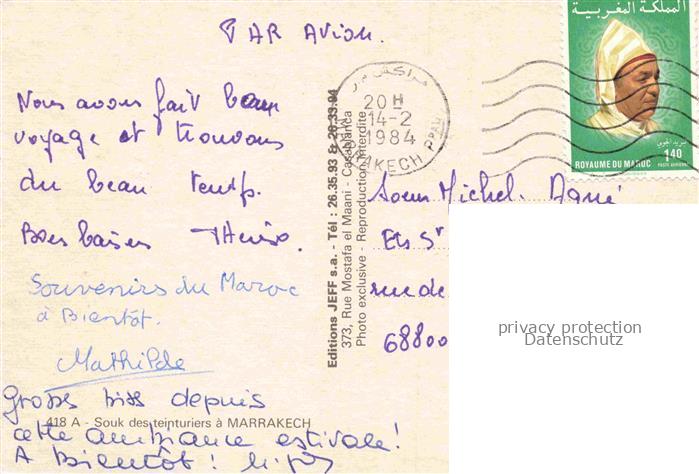 PAR AVION.
المملكة المغربية
Nous avons fait beau
voyage et trouvons
du beau temps.
Bons baisers
مراكش
20 H
14-2
1984
MARRAKECH PPAL
بريد الجوي
1,40
ROYAUME DU MAROC
POSTE AERIENNE
Soeur Michel
Ets St
rue de
68800
Souvenirs du Maroc
à Bientôt.
Mathilde
Editions JEFF s.a. - Tél : 26.35.93 & 26.33.94
373, Rue Mostafa el Maani - Casablanca
Photo exclusive - Reproduction interdite
privacy protection
Datenschutz
Grosses bises depuis
418 A - Souk des teinturiers à MARRAKECH
cette ambiance estivale!
A Bientôt!